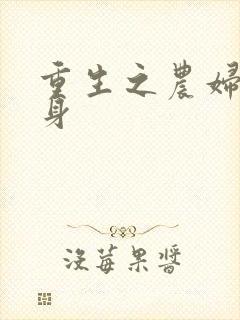 重生之農婦
身
没莓果醬